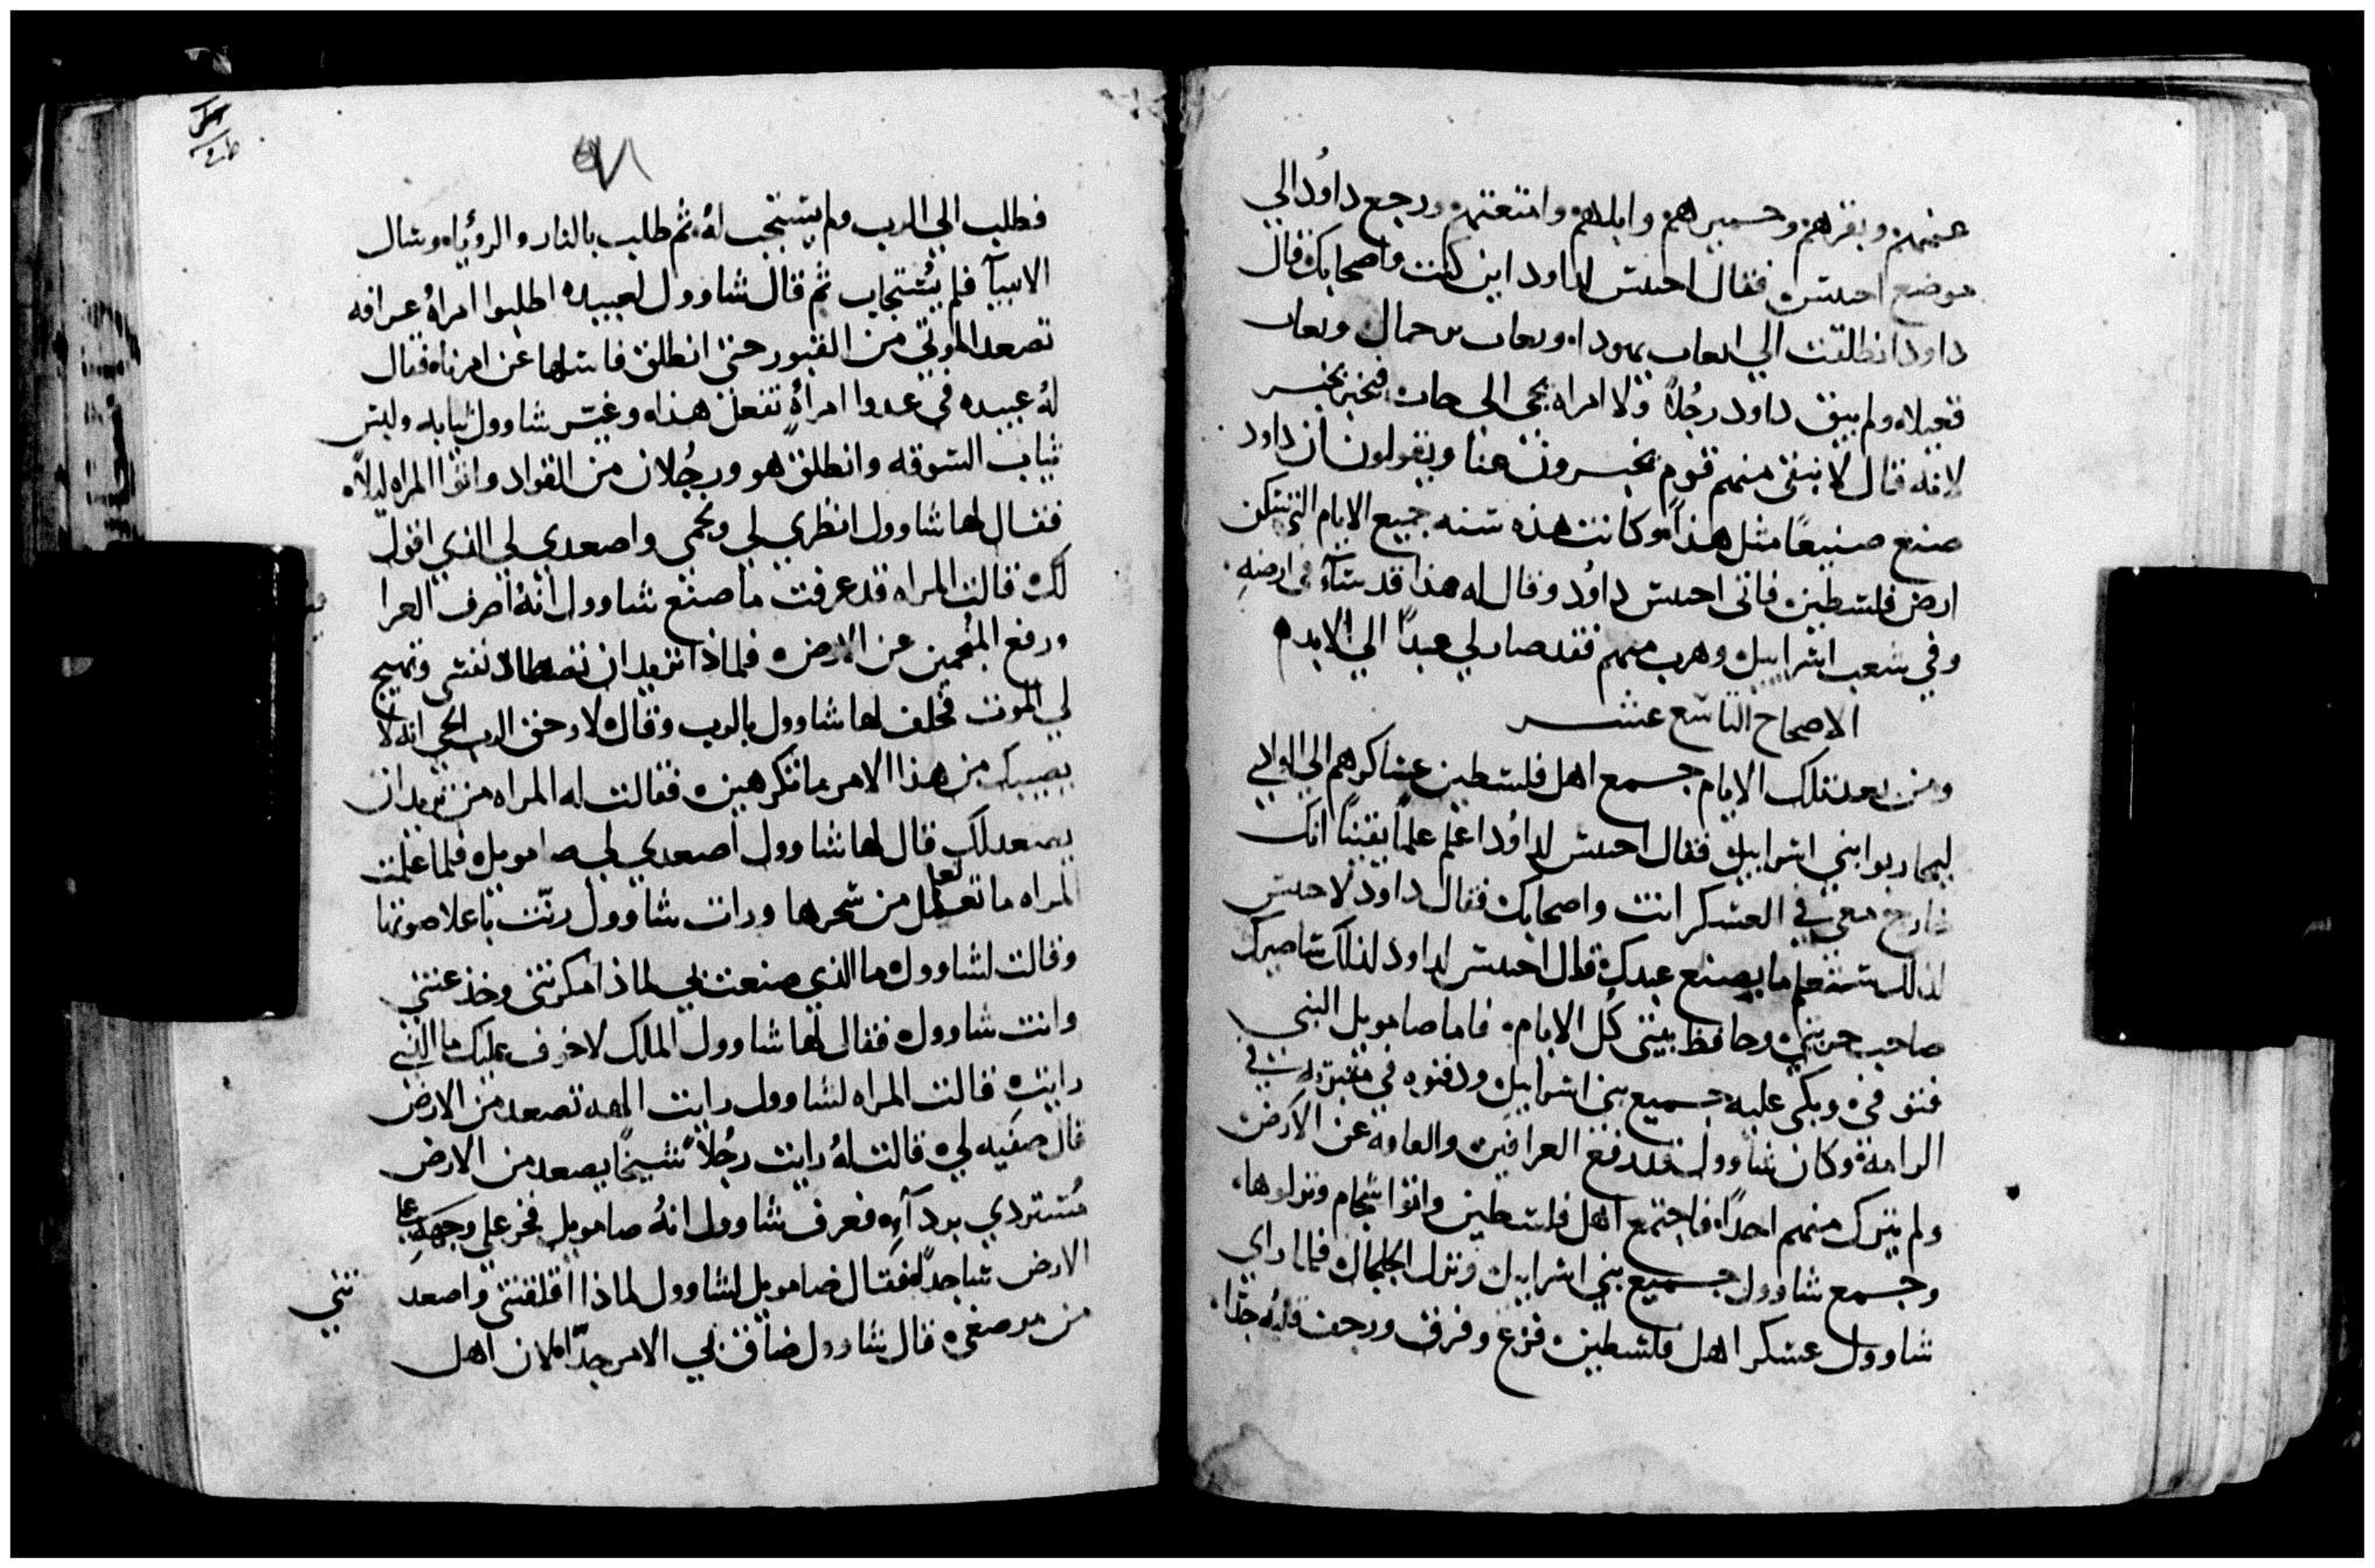 غنمهم وبقرهم وحميرهم وابلهم وامتعتهم ورجع داوُد الي
موضع احيس فقال احيس لداود اين كنت واصحابك قال
داود انطلقت الي يهودا
ولم يبق داود رجُلاً ولا امراه يجي الي حات فيخبر بخبر
لانه قال لا يبقى منهم قوم يخبرون عنا ويقولون ان داود
صنع صنيعًا مثل هذا وكانت هذه سنه جميع الايام التي سكن
ارض فلسطين فاتى احيس داوُد وقال له هذا قد سآء في ارضهِ
وفي شعب اسراييل وهرب منهم فقد صار لي عبدًا الي الابد
الاصحاح التاسع عشر
ومن بعد تلك الايام جمع اهل فلسطين عساكرهم الي الوادي
ليحاربوا بني اسراييل فقال احيس لداوُد اعلم علمًا يقينًا انك
خارج معي في العسكر انت واصحابك فقال داود لاحيس
لذلك ستعلم ما يصنع عبدك قال احيس لداود لذلك ساصيرك
صاحب حرسي وحافظ بيتي كُل الايام فاما صامويل النبي
فتوفي وبكى عليه جميع بني اسراييل ودفنوه في مقبرته في
الرامة وكان شاوول قد رفع العرافين والعافه عن الارض
ولم يترك منهم احدًا فاجتمع اهل فلسطين واتوا شجام ونزلوها
وجمع شاوول جميع بني اسراييل ونزل الجلجال فلما راي
شاوول عسكر اهل فلسطين فزع وفرق ورجف قلبُه جدًا
٥٧١
فطلب الي الرب ولم يستجب لهُ ثم طلب بالنار والرؤيا وسال
الانبيآ فلم يُستجاب ثم قال شاوول لعبيده اطلبوا امراهُ عرافه
تصعد الموتي من القبور حتى انطلق فاسلها عن امرنا فقال
لهُ عبيده في عدوا امراةٍ تفعل هذا وغير شاوول ثيابه ولبس
ثياب السوقه وانطلق هو ورجُلان من القواد واتوا المراه ليلاً
فقال لها شاوول انظري لي ونجمي واصعدي لي الذي اقول
لك قالت المراه قد عرفت ما صنع شاوول انهُ اصرف العرا
ورفع المنُجمين عن الارض فلماذا تريد ان تصطاد نفسي وتهيج
لي الموت فحلف لها شاوول بالرب وقال لا وحق الرب الحي انه لا
يصيبك من هذا الامر ما تكرهين فقالت له المراه من تريد ان
يصعد لك قال لها شاوول اصعدي لي صامويل فلما علمت
المراه ما تعمل من سحرها ورات شاوول رنّت باعلا صوتها
وقالت لشاوول ما الذي صنعت بي لماذا مكرتني وخذعتني
وانت شاوول فقال لها شاوول الملك لا خوف عليك ما الذي
رايت قالت المراه لشاوول رايت الهه تصعد من الارض
قال صفيه لي قالت لهُ رايت رجُلاً شيخًا يصعد من الارض
مُستردي بردآيه فعرف شاوول انهُ صامويل فخر علي وجههِ علي
الارض ساجدًا فقال صامويل لشاوول لماذا اقلقتني واصعد تني
من موضعي قال شاوول ضاق بي الامر جدًا لان اهل